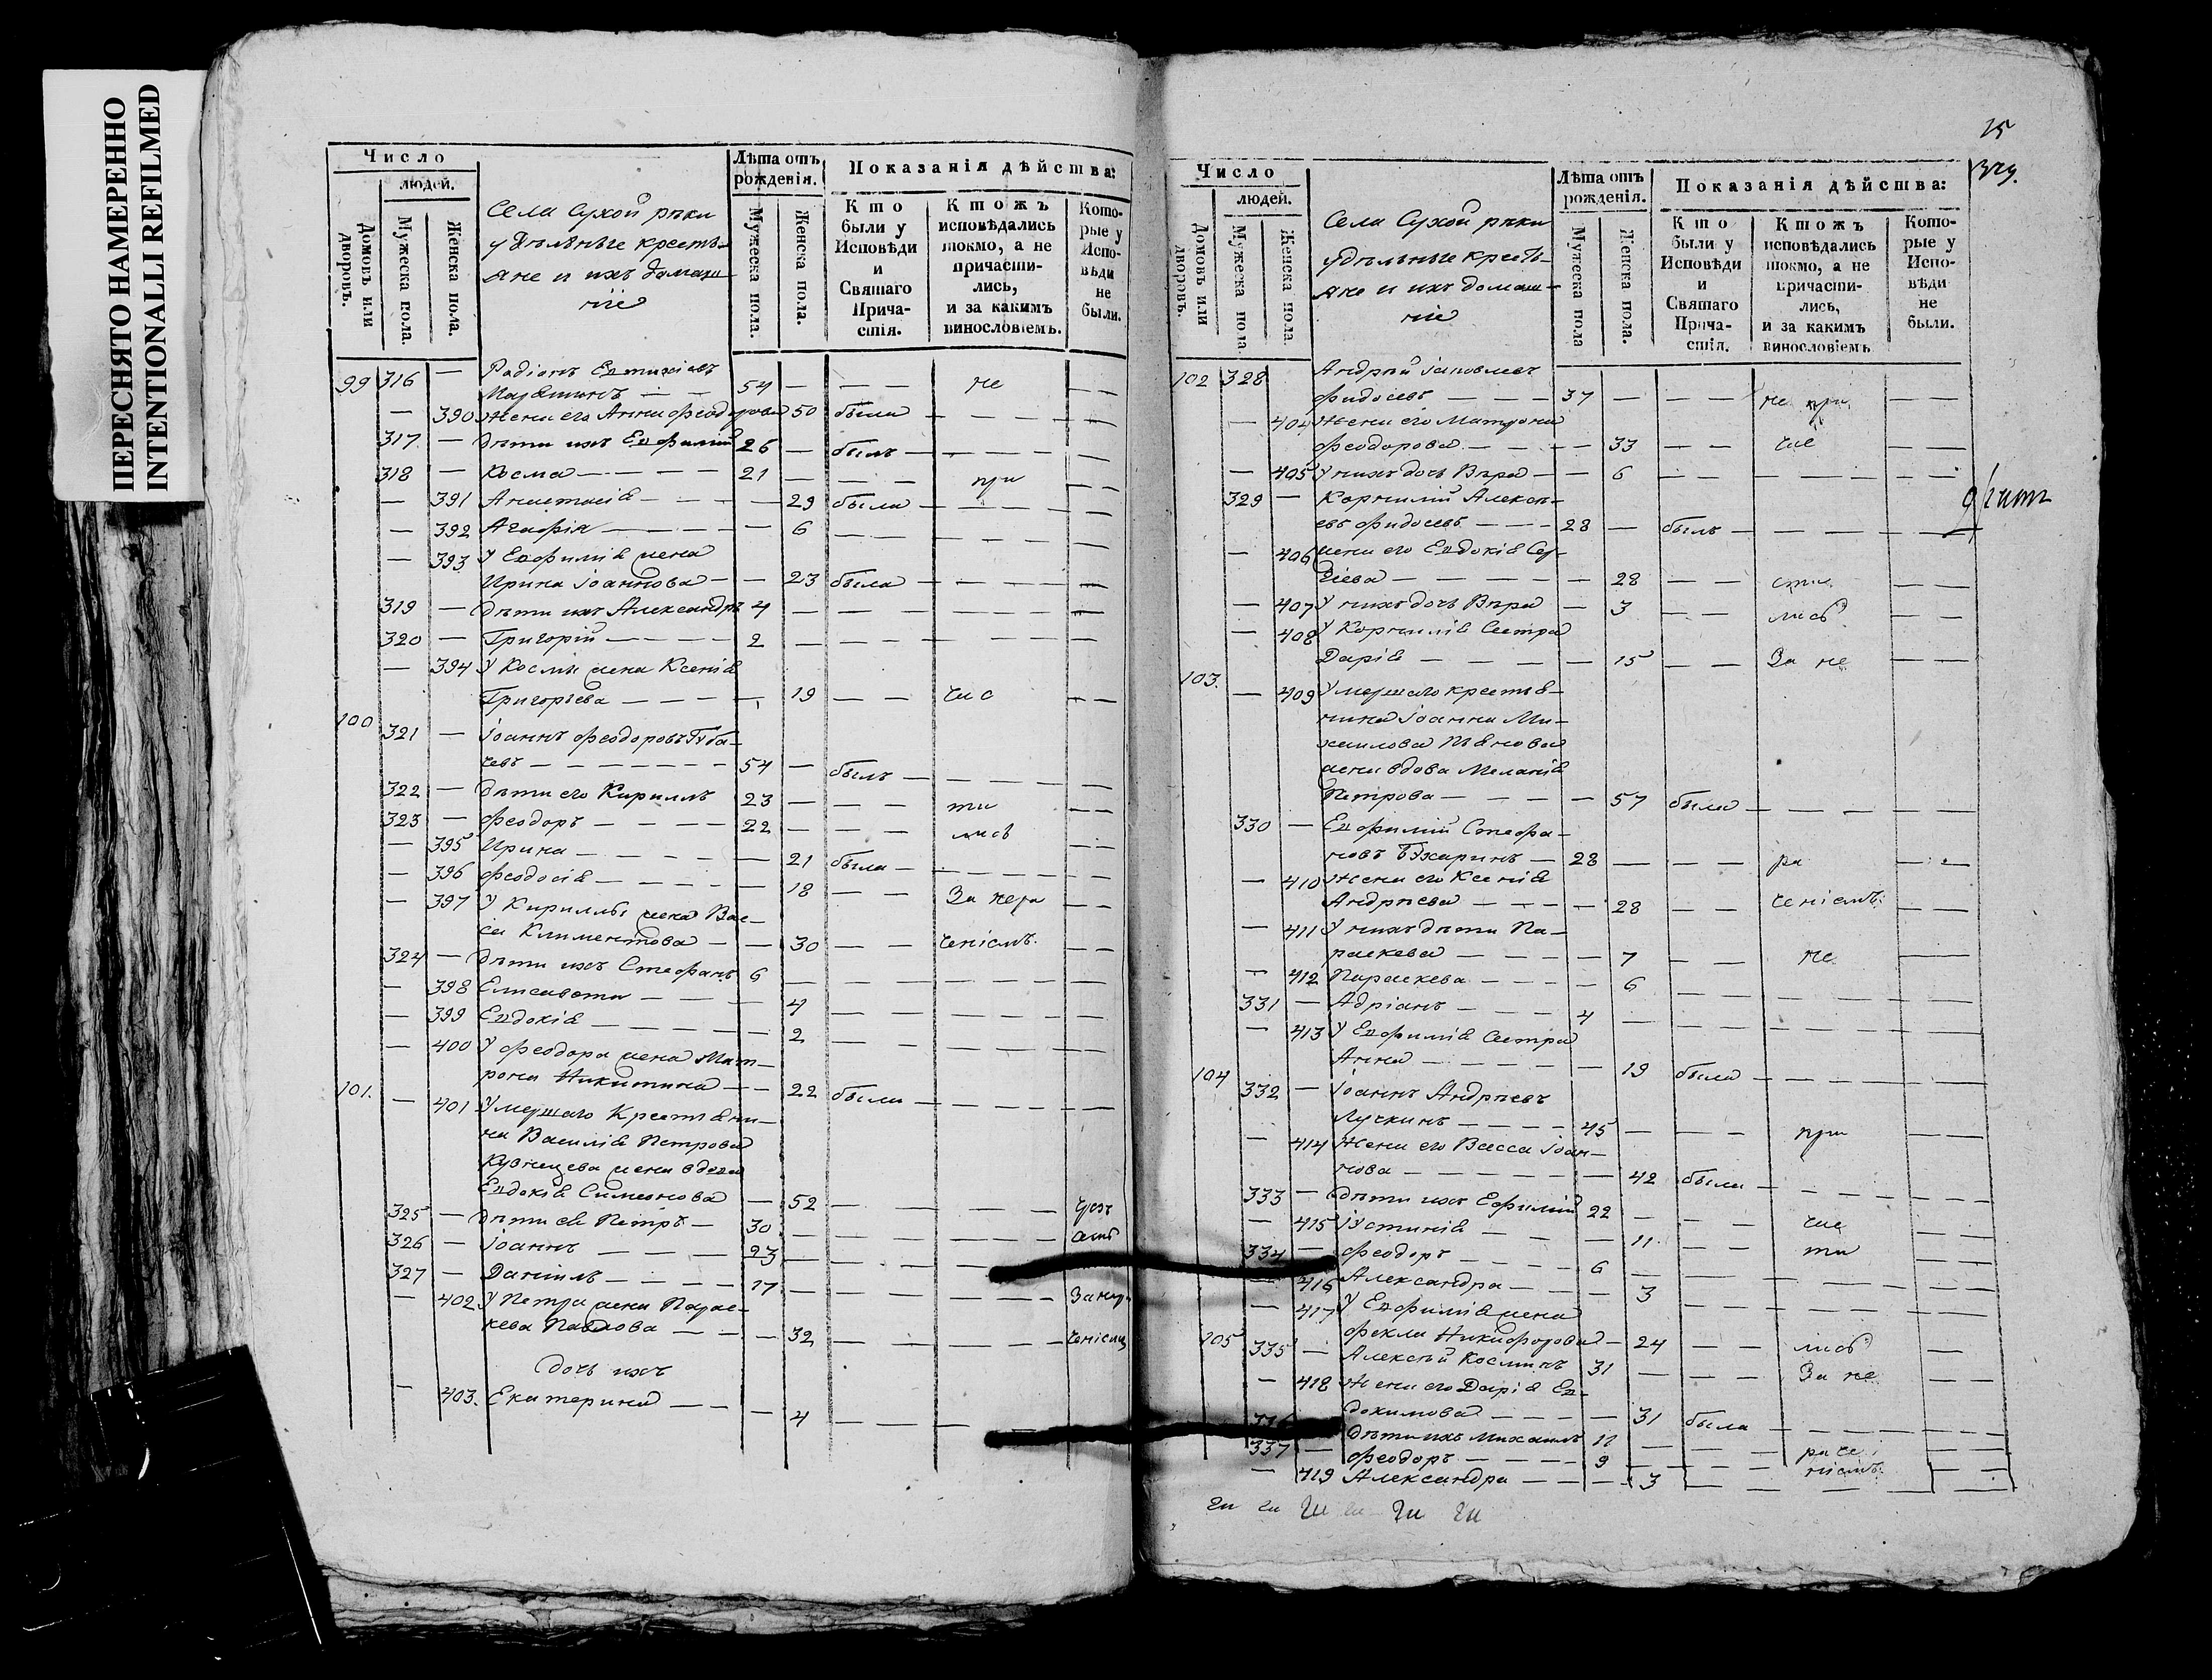 ПЕРЕСНЯТО НАМЕРЕННО
INTENTIONALLI REFILMED
Число
людей.
Домовъ или дворовъ.
Мужеска пола.
Женска пола.
Села Сухой рѣки
удѣльные кресть-
яне и ихъ домаш-
ніе
Лѣта отъ рожденія.
Мужеска пола.
Женска пола.
Показанія дѣйства:
Кто были у Исповѣди и Святаго Прича-стія.
Ктожъ исповѣдались токмо, а не причасти-лись, и за какимъ винословіемъ.
Кото-рые у Испо-вѣди не были.
99 316 — Радіонъ Евтихіевъ
54 — — — не — —
— 390 Жена его Анна Феодорова 50 была — — — — —
317 — дѣти ихъ Евфимій 26 — былъ — — — — —
318 — Косма — — — — 21 — — — при — —
— 391 Анастасія — — — — 29 была — — — — —
— 392 Агафія — — — — — 6 — — — — — —
— 393 У Евфимія жена
Ирина Іоаннова — — 23 была — — — — —
319 — дѣти ихъ Александръ 4 — — — — — — —
320 — Григорій — — — — 2 — — — — — — —
— 394 У Космы жена Ксенія
Григорьева — — — — 19 — — час — —
100 321 — Іоаннъ Феодоровъ Губа-
чевъ — — — — — — — 54 — былъ — — — — —
322 — дѣти его Кириллъ 23 — — — ти — —
323 — Феодоръ — — — — 22 — — — лись — —
— 395 Ирина — — — — — 21 была — — — — —
— 396 Феодосія — — — — — 18 — — За нера — —
— 397 У Кирилла жена Вас-
са Климентова — — 30 — — ченіемъ. — —
324 — дѣти ихъ Стефанъ 6 — — — — — — —
— 398 Елисавета — — — — 4 — — — — — —
— 399 Евдокія — — — — — 2 — — — — — —
— 400 У Феодора жена Мат-
рона Никитина — — 22 была — — — — —
101. — 401 Умершаго Крестьяни-
на Василія Петрова
Кузнецева жена вдова
Евдокія Симеонова — 52 — — — — чрез
325 — дѣти ея Петръ — 30 — — — — —
326 — Іоаннъ — — — 23 — — — — —
327 — Даніилъ — — — — 17 — — — — —
— 402 У Петра жена Парас-
кева Павлова — — — 32 — — — —
дочь ихъ
— 403. Екатерина — — — 4 — — — —
15
Число
людей.
Домовъ или дворовъ.
Мужеска пола
Женска пола
Села Сухой рѣки
удѣльные кресть-
яне и ихъ домаш-
ніе
Лѣта отъ рожденія.
Мужеска пола
Женска пола.
Показанія дѣйства:
Кто были у Исповѣди и Святаго Прича-стія.
Ктожъ исповѣдались токмо, а не причасти-лись, и за какимъ винословіемъ
Кото-рые у Испо-вѣди не были.
102 328 Андрей Іаковлевъ
Фидосевъ — — — 37 — — — не при — —
— 404 Жена его Матрона
Феодорова — — — — 33 — — час — —
— 405 У нихъ дочь Вѣра — — 6 — — — — — —
329 — Корнилій Алексѣ-
евъ Фидосевъ — — — 28 — былъ — — — — —
— 406 жена его Евдокія Сер-
гіева — — — — — 28 — — сти — —
— 407 У нихъ дочь Вѣра — 3 — — лись — —
— 408 У Корнилія Сестра
Дарія — — — — 15 — — За не — —
103. — 409 Умершаго крестья-
нина Іоанна Ми-
хаилова Пьянова
жена вдова Меланія
Петрова — — — — 57 была — — — — —
330 — Евфимій Стефа-
новъ Бухаринъ — 28 — — — ра — —
— 410 Жена его Ксенія
Андрѣева — — — — 28 — — ченіемъ. — —
— 411 У нихъ дѣти Па-
раскева — — — — 7 — — не —
— 412 Параскева — — — — 6 — — — — — —
331 — Адріанъ — — — — 4 — — — — — — —
— 413 У Евфимія Сестра
Анна — — — — — 19 была — — — — —
104 332 — Іоаннъ Андрѣевъ
Лучкинъ — — — — 45 — — — при — —
— 414 Жена его Васса Іоан-
нова — — — — — — 42 была — — — — —
333 — дѣти ихъ Ефимій 22 — — — час — —
— 415 Іустинія — — — — 11 — — ти — —
334 — Феодоръ — — — — 6 — — — — — — —
416 Александра — — — — 3 — — — — — —
— 417 У Евфимія жена
Фекла Никифорова — 24 — — лись —
105 335 — Алексѣй Косминъ 31 — — — За не — —
— 418 Жена его Дарія Ев-
докимова — — — — — 31 была — — — — —
336 дѣти ихъ Михаилъ 11 — — — — —
337 — Феодоръ — — — — 9 — — — раче — —
— 419 Александра — — — 3 — — ніемъ — —